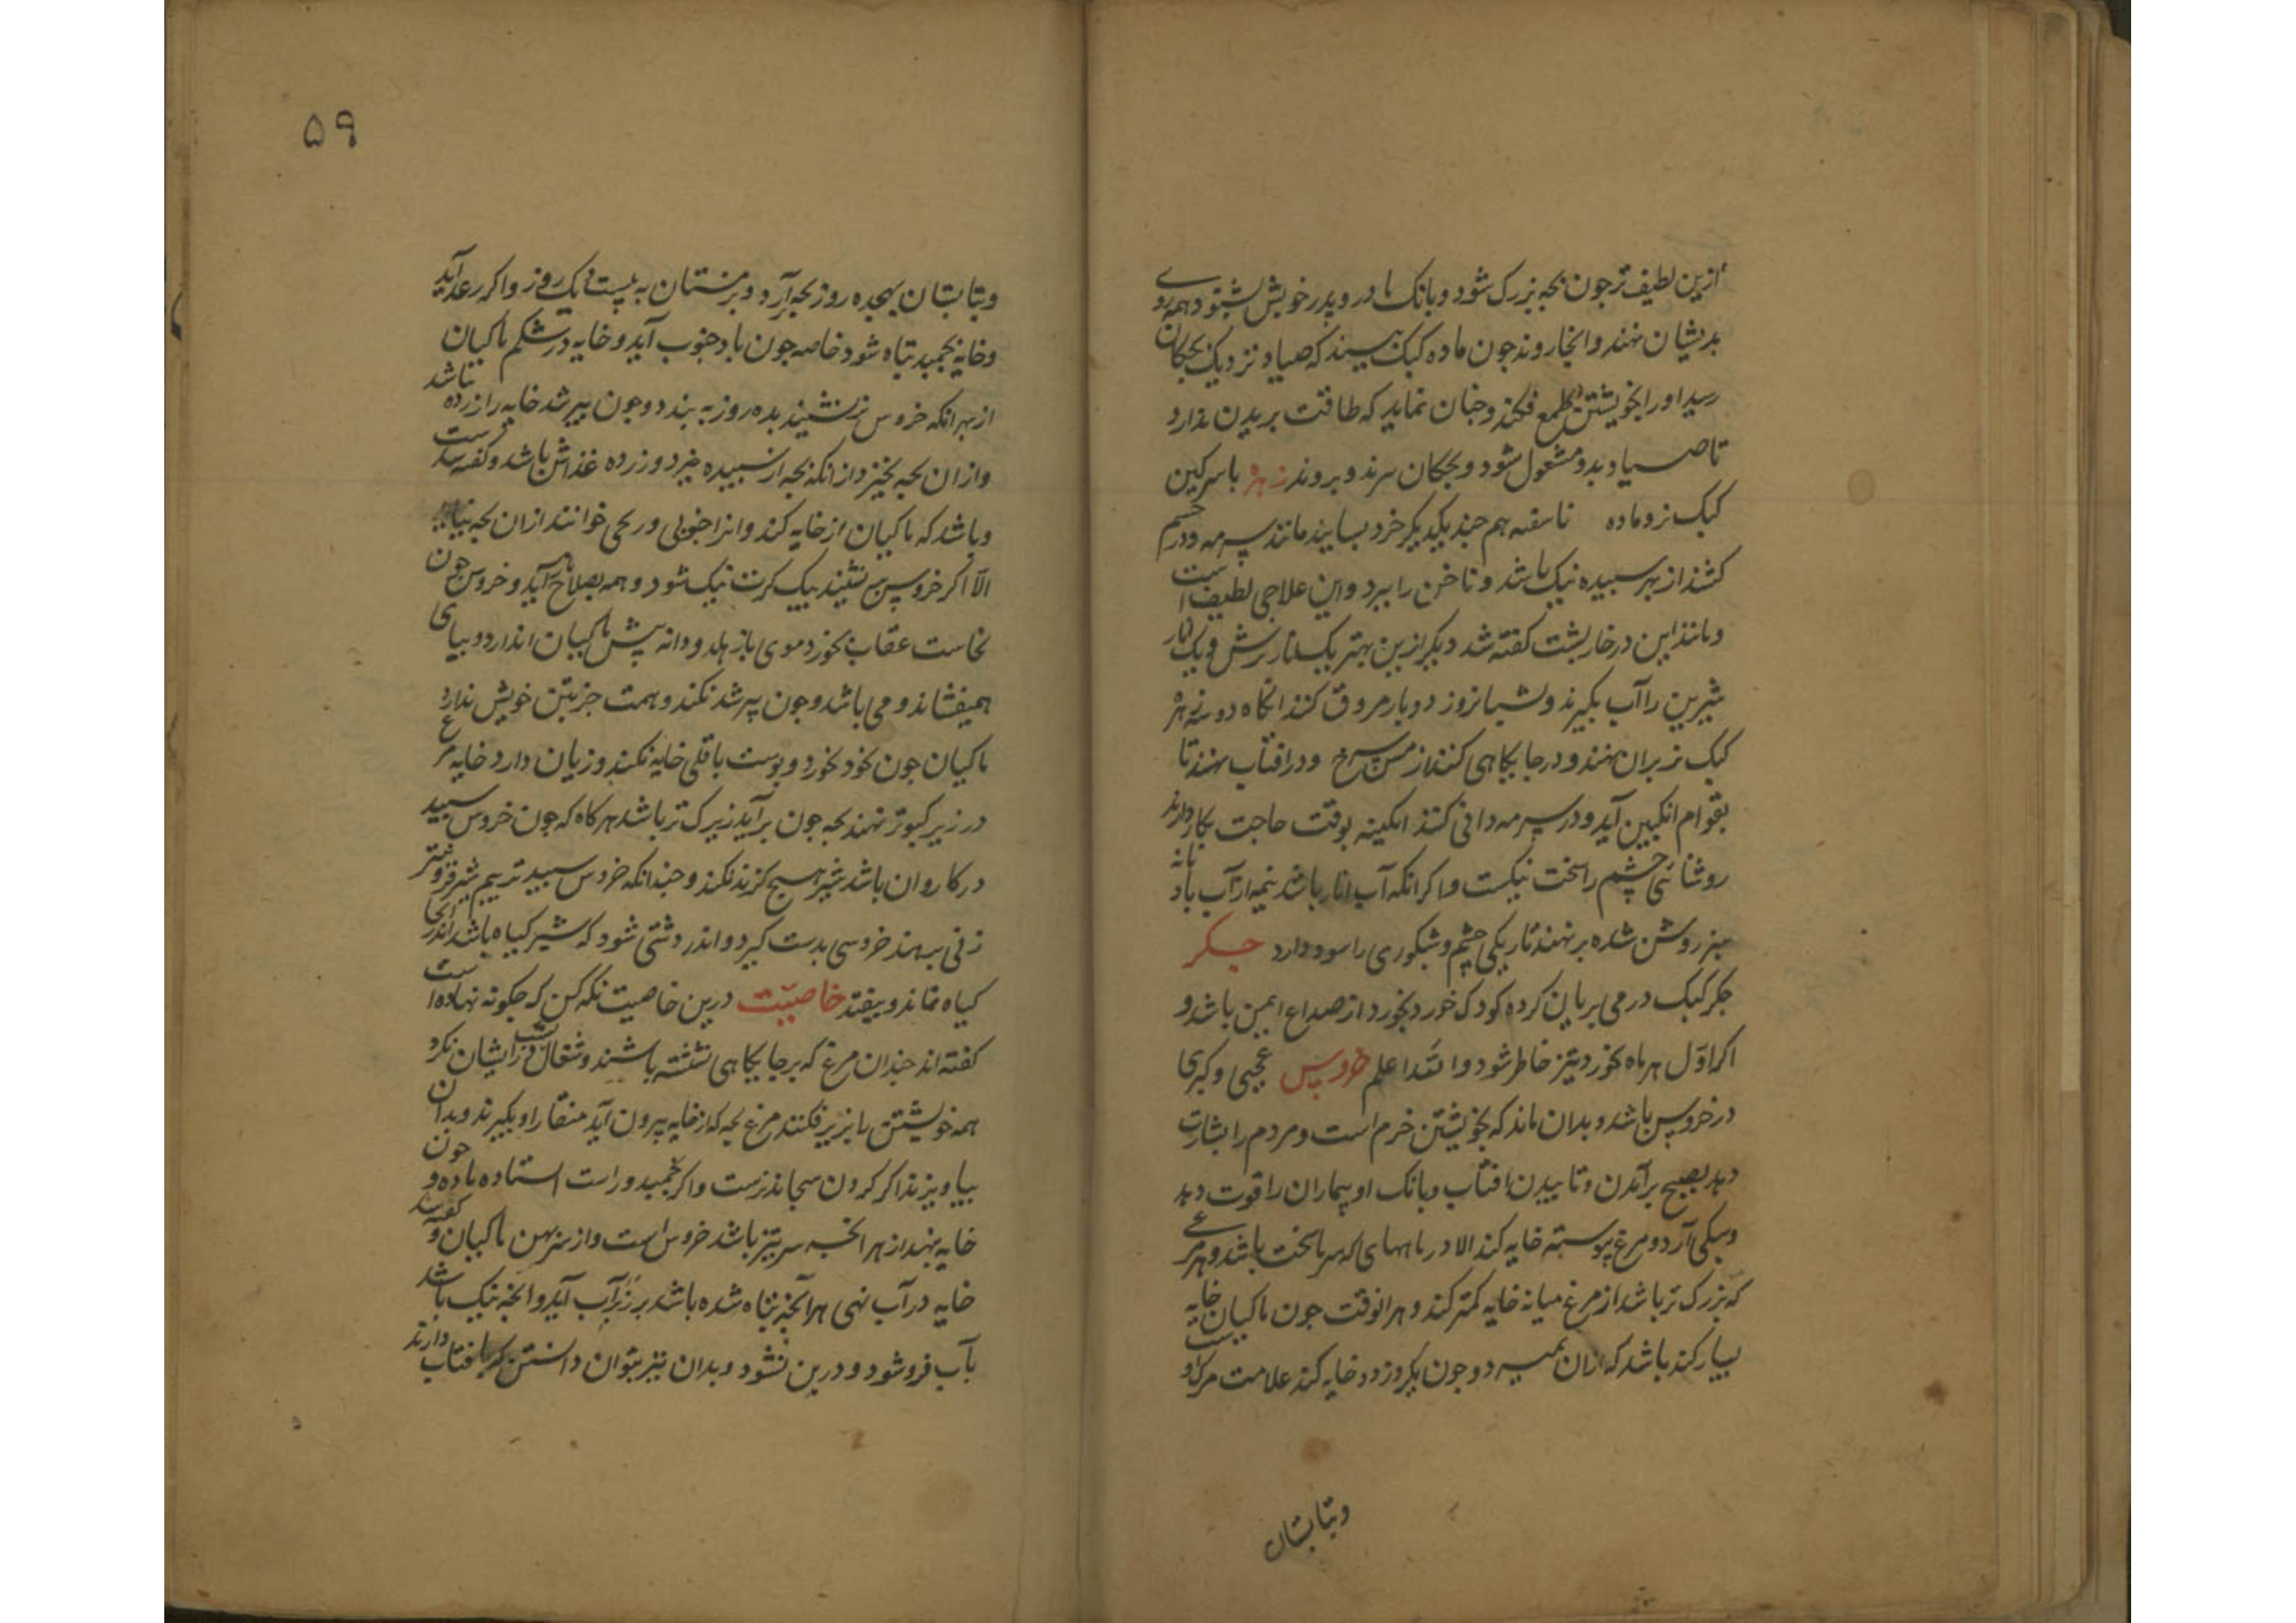 ازین لطیف تر جون بجه بزرک شود و بانک مادر و پدر خویش بشنود همه روی
بدیشان نهند و انجا روند جون ماده کبک ببیند که صیاد نزدیک بجکان
رسید او را بخویشتن طمع فکند و جنان نماید که طاقت بریدن ندارد
تا صیاد بدو مشغول شود و بجکان سرند و بروند زهره با سرکین
کبک نر و ماده ناسفته هم جند یکدیکر خرد بسایند مانند سرمه و در جشم
کشند از بهر سبیده نیک باشد و ناخن را ببرد و این علاجی لطیف است
و مانند این در خاربشت کفته شد دیکر ازین بهتر یک انار ترش و یک انار
شیرین را آب بکیرند و شبانروز دو بار مروق کنند انکاه دو زهره
کبک نر بران نهند و در جایکاهی کنند از مس سرخ و در افتاب نهند تا
بقوام انکبین آید و در سرمه دانی کنند ابکینه بوقت حاجت بکار دارند
روشنائی جشم را سخت نیکست و اکر انکه آب انار باشد نیمه از آب باد
سبز روشن شده برنهند تاریکی جشم و شبکوری را سود دارد جکر
جکر کبک در می بریان کرده کودک خورد بخورد از صداع ایمن باشد و
اکر اول هر ماه بخورد تیز خاطر شود والله اعلم خروس عجبی و کبری
در خروس باشد و بدان ماند که بخویشتن خرم است و مردم را بشارت
دهد بصبح برآمدن و تابیدن افتاب و بانک او بیماران را قوت دهد
وسبکی آرد و مرغ پیوسته خایه کند الا در ماههای که سرما سخت باشد و هر مرغی
که بزرک تر باشد از مرغ میانه خایه کمتر کند و هر انوقت جون ماکیان خایه
بسیار کند باشد که ازان بمیرد و جون یکروز دو خایه کند علامت مرک اوست
وبتابستان
۵۹
وبتابستان بهجده روز بجه برآرد و بزمستان به بیست و یک روز و اکر رعد آید
وخایه بجمبد تباه شود خاصه جون باد جنوب آید و خایه در شکم ماکیان
از بهر انکه خروس برنشیند بده روز به بندد و جون پیر شد خایه را زرده نباشد
وازان بجه نخیزد از انکه بجه از سبیده خیزد و زرده غذاش باشد و کفته‌اند
وباشد که ماکیان از خایه کند و انرا جنوبی و ریحی خوانند ازان بجه نیاید
الا اکر خروس برنشیند بیک کرت نیک شود و همه بصلاح باز آید و خروس جون
نخاست عقاب بخورد موی باز هلد و دانه پیش ماکیان اندازد و بپای
همیفشاند و می باشد و جون پیر شد نکند و همت جز بتن خویش ندارد
ماکیان جون نخود بخورد و پوست باقلی خایه نکند و زیان دارد خایه مرغ
در زیر کبوتر نهند بجه جون برآید زیرک تر باشد هرکاه که جون خروس سبید
در کاروان باشد شیر هیچ کزند نکند و جندانکه خروس سبید تر بیم شیر فزونتر
زنی برهنه خروسی بدست کیرد و اندر دشتی شود که شیر کیاه باشد اندر انجا
کیاه نماند و بیفتد خاصیّت درین خاصیت نکه کن که جکونه نهاده است
کفته اند جندان مرغ که بر جایکاهی نشسته باشند و شغال در ایشان نکرد
همه خویشتن را بزیر فکنند مرغ بجه که از خایه بیرون آید منقار او بکیرند و بدان
بیاویزند اکر کردن بیجاند نرست و اکر نجمبد و راست استاده ماده و جون
خایه بنهد از هر انجه سر تیز باشد خروس است و از سر پهن ماکیان و کفته‌اند
خایه در آب نهی هر آنجه تباه شده باشد بر زبر آب آید و انجه نیک باشد
بآب فرو شود و درین نشود و بدان نیز بتوان دانستن که بافتاب دارند